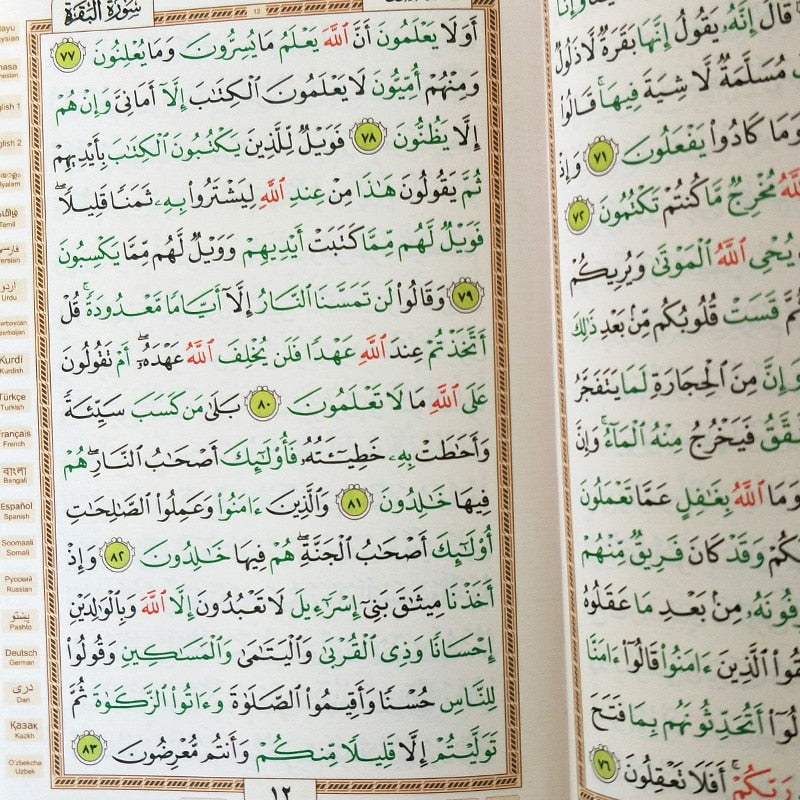 سُورَةُ البَقَرَةِ
12
أَوَلَا يَعْلَمُونَ أَنَّ ٱللَّهَ يَعْلَمُ مَا يُسِرُّونَ وَمَا يُعْلِنُونَ ٧٧
وَمِنْهُمْ أُمِّيُّونَ لَا يَعْلَمُونَ ٱلْكِتَٰبَ إِلَّآ أَمَانِىَّ وَإِنْ هُمْ
إِلَّا يَظُنُّونَ ٧٨ فَوَيْلٌ لِّلَّذِينَ يَكْتُبُونَ ٱلْكِتَٰبَ بِأَيْدِيهِمْ
ثُمَّ يَقُولُونَ هَٰذَا مِنْ عِندِ ٱللَّهِ لِيَشْتَرُوا۟ بِهِۦ ثَمَنًا قَلِيلًا ۖ
فَوَيْلٌ لَّهُم مِّمَّا كَتَبَتْ أَيْدِيهِمْ وَوَيْلٌ لَّهُم مِّمَّا يَكْسِبُونَ
٧٩ وَقَالُوا۟ لَن تَمَسَّنَا ٱلنَّارُ إِلَّآ أَيَّامًا مَّعْدُودَةً ۚ قُلْ
أَتَّخَذْتُمْ عِندَ ٱللَّهِ عَهْدًا فَلَن يُخْلِفَ ٱللَّهُ عَهْدَهُۥٓ ۖ أَمْ تَقُولُونَ
عَلَى ٱللَّهِ مَا لَا تَعْلَمُونَ ٨٠ بَلَىٰ مَن كَسَبَ سَيِّئَةً
وَأَحَٰطَتْ بِهِۦ خَطِيٓـَٔتُهُۥ فَأُو۟لَٰٓئِكَ أَصْحَٰبُ ٱلنَّارِ ۖ هُمْ
فِيهَا خَٰلِدُونَ ٨١ وَٱلَّذِينَ ءَامَنُوا۟ وَعَمِلُوا۟ ٱلصَّٰلِحَٰتِ
أُو۟لَٰٓئِكَ أَصْحَٰبُ ٱلْجَنَّةِ ۖ هُمْ فِيهَا خَٰلِدُونَ ٨٢ وَإِذْ
أَخَذْنَا مِيثَٰقَ بَنِىٓ إِسْرَٰٓءِيلَ لَا تَعْبُدُونَ إِلَّا ٱللَّهَ وَبِٱلْوَٰلِدَيْنِ
إِحْسَانًا وَذِى ٱلْقُرْبَىٰ وَٱلْيَتَٰمَىٰ وَٱلْمَسَٰكِينِ وَقُولُوا۟
لِلنَّاسِ حُسْنًا وَأَقِيمُوا۟ ٱلصَّلَوٰةَ وَءَاتُوا۟ ٱلزَّكَوٰةَ ثُمَّ
تَوَلَّيْتُمْ إِلَّا قَلِيلًا مِّنكُمْ وَأَنتُم مُّعْرِضُونَ ٨٣
١٢
قَالَ إِنَّهُۥ يَقُولُ إِنَّهَا بَقَرَةٌ لَّا ذَلُولٌ
مُسَلَّمَةٌ لَّا شِيَةَ فِيهَا ۚ قَالُوا۟
وَمَا كَادُوا۟ يَفْعَلُونَ ٧١ وَإِذْ
مُخْرِجٌ مَّا كُنتُمْ تَكْتُمُونَ ٧٢
يُحْىِ ٱللَّهُ ٱلْمَوْتَىٰ وَيُرِيكُمْ
قَسَتْ قُلُوبُكُم مِّنۢ بَعْدِ ذَٰلِكَ
وَإِنَّ مِنَ ٱلْحِجَارَةِ لَمَا يَتَفَجَّرُ
فَيَخْرُجُ مِنْهُ ٱلْمَآءُ ۚ وَإِنَّ
وَمَا ٱللَّهُ بِغَٰفِلٍ عَمَّا تَعْمَلُونَ
وَقَدْ كَانَ فَرِيقٌ مِّنْهُمْ
مِنۢ بَعْدِ مَا عَقَلُوهُ
ٱلَّذِينَ ءَامَنُوا۟ قَالُوٓا۟ ءَامَنَّا
أَتُحَدِّثُونَهُم بِمَا فَتَحَ
رَبِّكُمْ ۚ أَفَلَا تَعْقِلُونَ ٧٦
English 2
தமிழ்
Tamil
اردو
Urdu
Kurdî
Kurdish
Türkçe
Turkish
Français
French
বাংলা
Bengali
Español
Spanish
Soomaali
Somali
Русский
Russian
پښتو
Pashto
Deutsch
German
دری
Dari
Қазақ
Kazkh
O'zbekcha
Uzbek